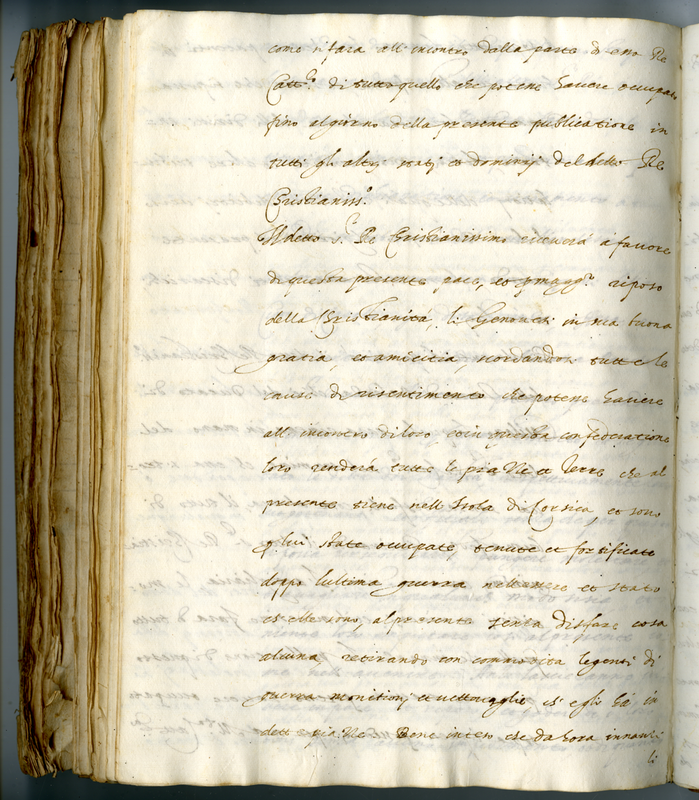 come si fara all' incontro dalla parte di esso Re
Catt.co di tutto quello che potesse havere occupato
fino al giorno della presente publicatione in
tutti gli altri stati et dominij del detto Re
Christianiss.o
Il detto s.r Re Christianissimo ricevera a favore
di questa presente pace, et p maggr. riposo
della Christianità, li Genovesi in sua buona
gratia, et amicitia, scordandosi tutte le
cause di risentimento che potesse havere
all' incontro di loro, et in questa consideratione
loro renderà tutte le piazze et Terre che al
presente tiene nell' Isola di Corsica, et sono
p lui state occupate, tenute et fortificate
doppo l'ultima guerra nell' essere et stato
ch' elle sono al presente senza disfare cosa
alcuna, retirando con commodita le genti di
guerra monitioni et vettovaglie ch' egli hà in
dette piazze Bene inteso che da hora innanzi
li